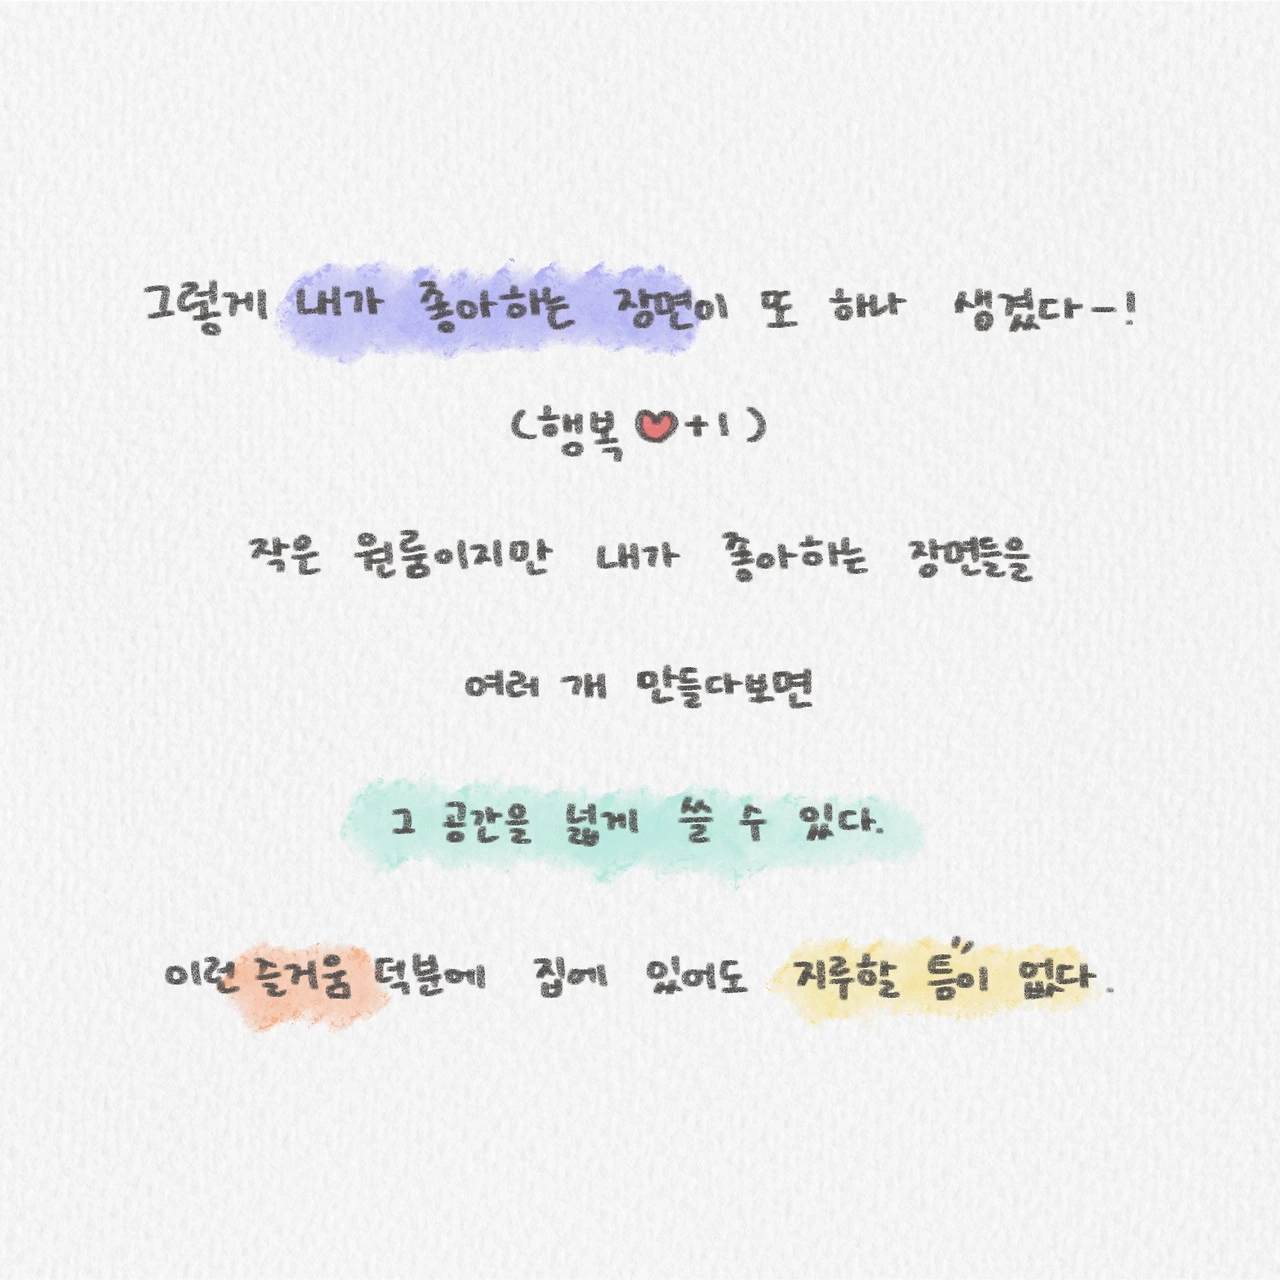 그렇게 내가 좋아하는 장면이 또 하나 생겼다-!
(행복 ♥+1)
작은 원룸이지만 내가 좋아하는 장면들을
여러 개 만들다보면
그 공간을 넓게 쓸 수 있다.
이런 즐거움 덕분에 집에 있어도 지루할 틈이 없다.